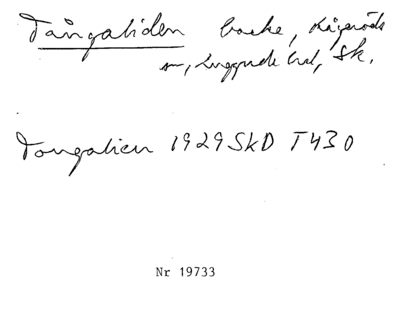 Tångaliden backe, Kågeröds
sn, Luggude hd, Sk.
Tongalien 1929 SkD T430
Nr 19733